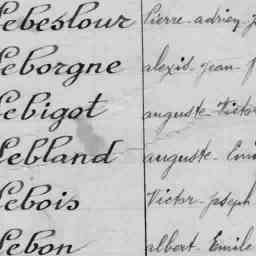 Lebeslour Pierre-adrien-J
Leborgne alexis-jean-
Lebigot auguste-Victo
Lebland auguste-Emi
Lebois Victor-joseph
Lebon albert-Emile